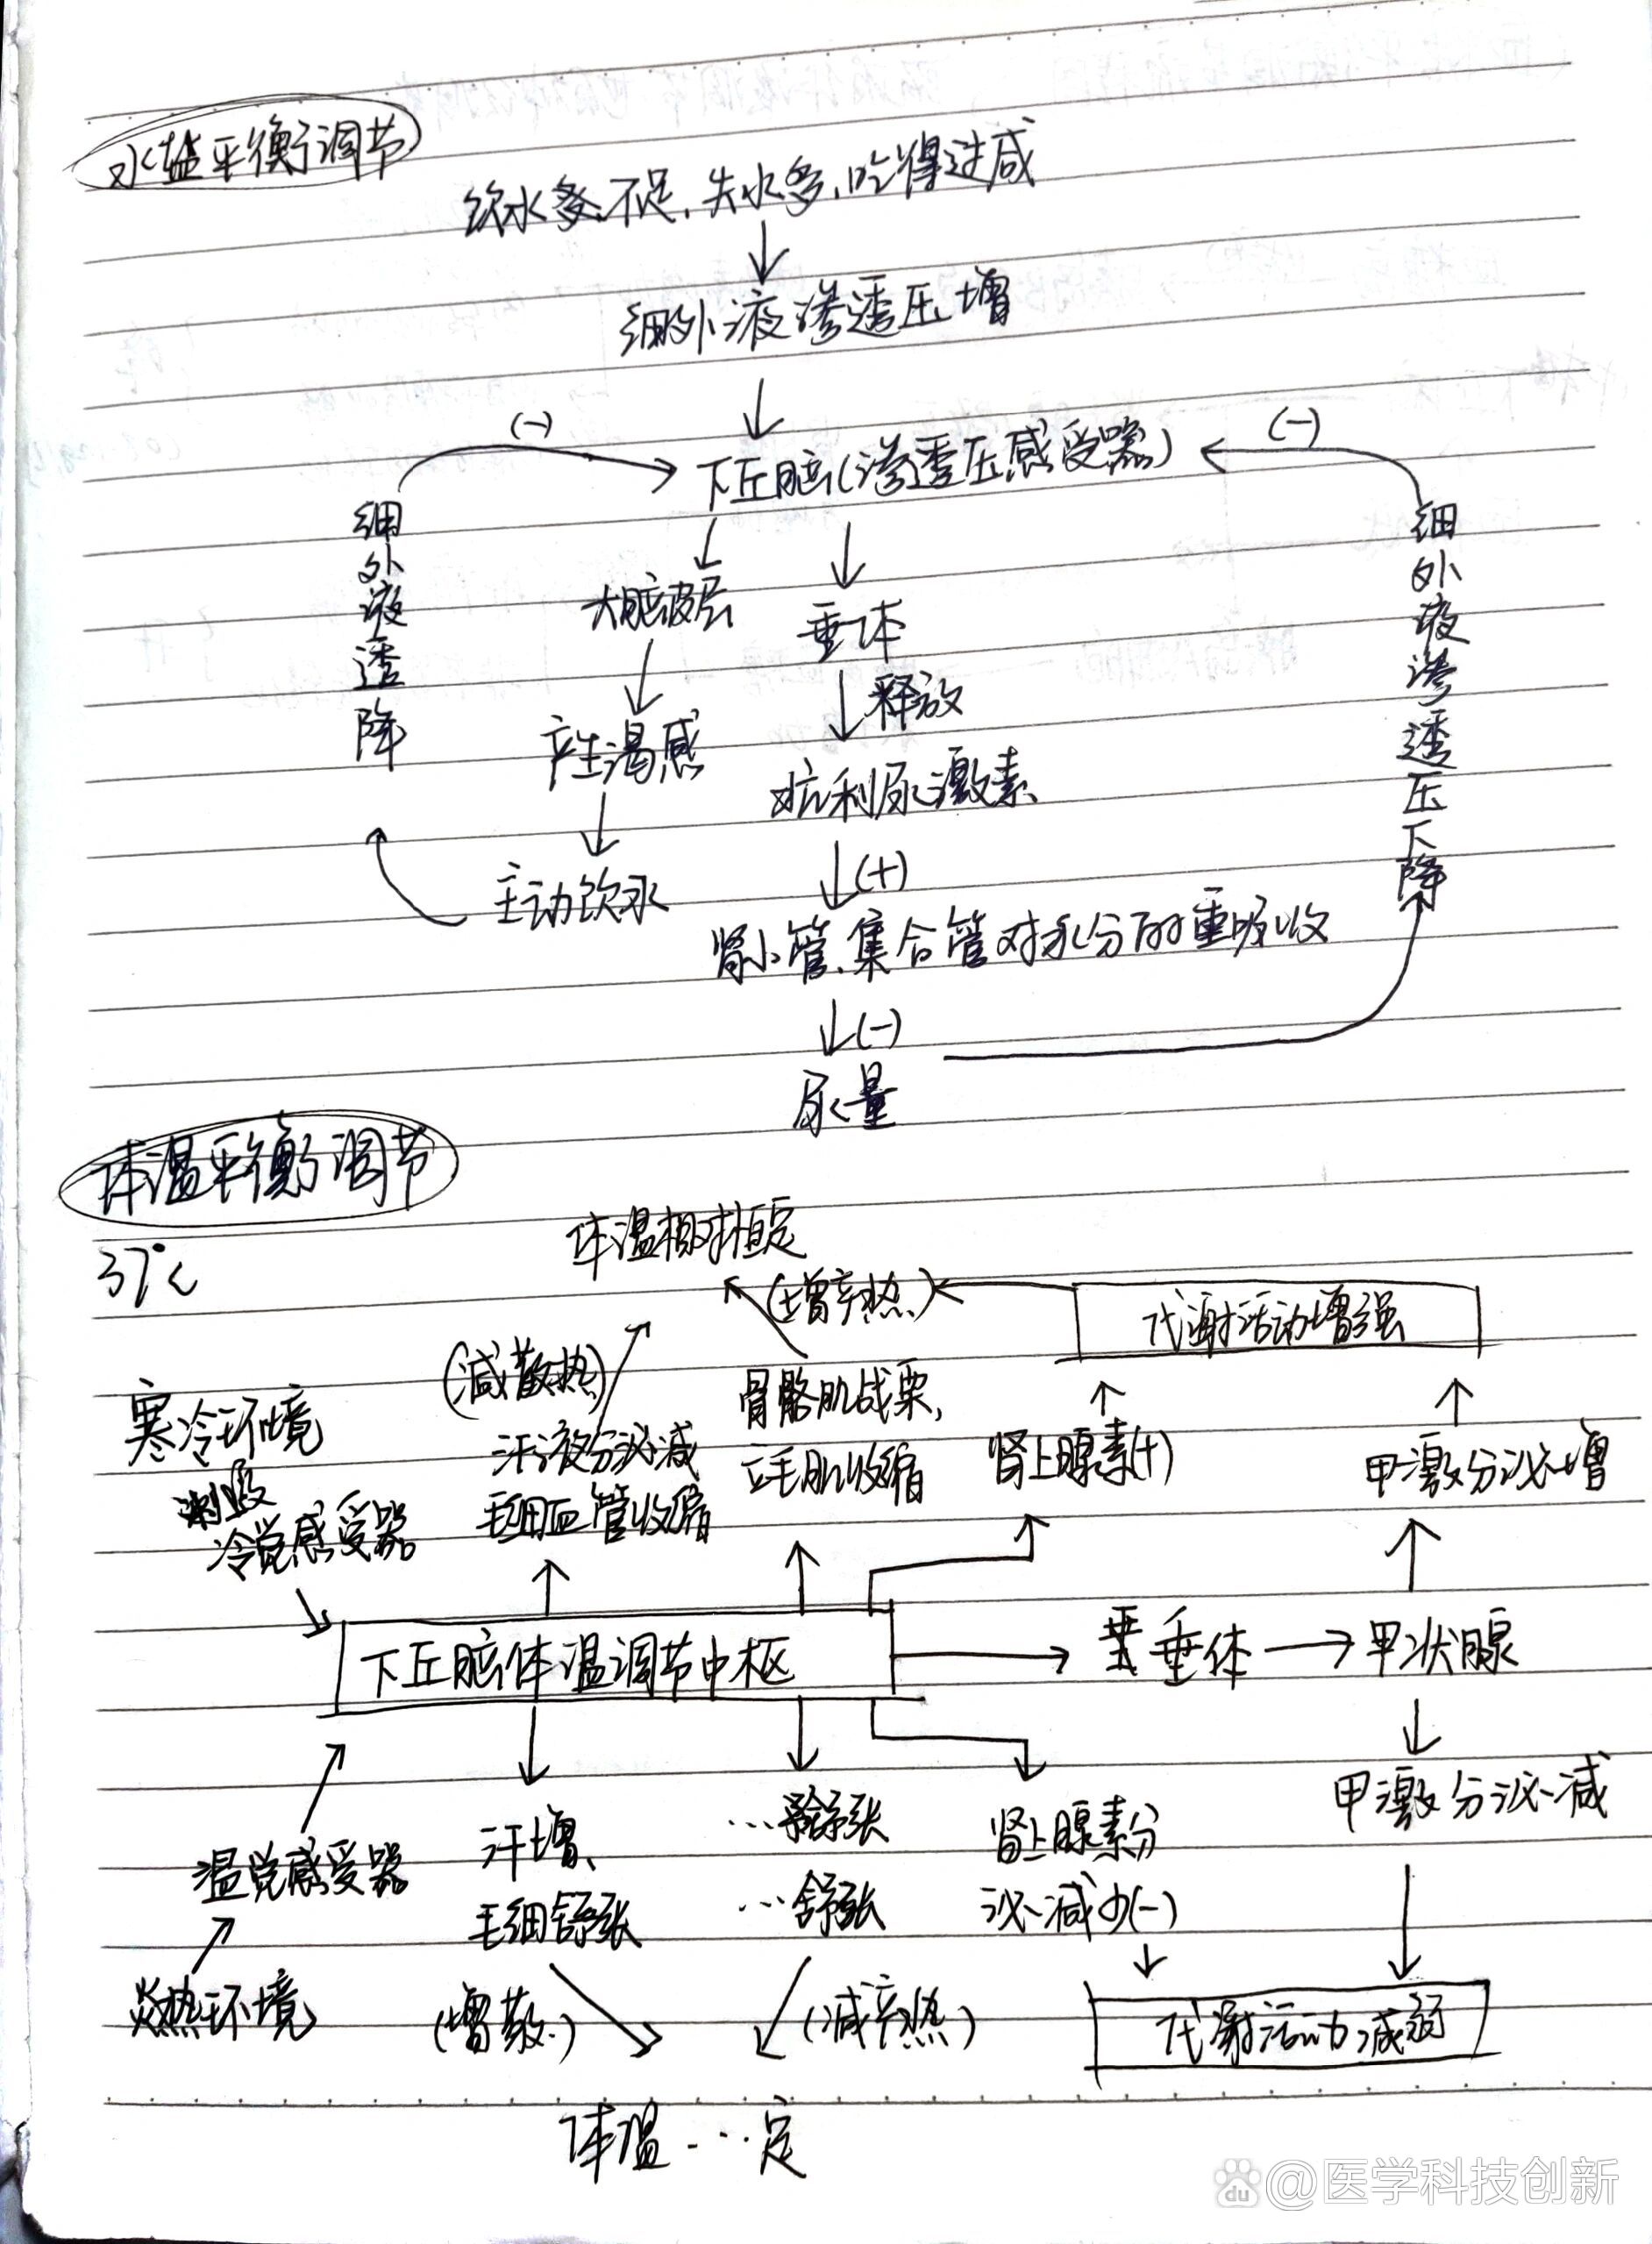 水盐平衡调节
饮水不足,失水多,吃得过咸
细外液渗透压增
(-)
(-)
下丘脑(渗透压感受器)
细外液透降
细外液渗透压下降
大脑皮层
垂体
释放
产生渴感
抗利尿激素
(+)
主动饮水
肾小管、集合管对水分的重吸收
(-)
尿量
体温平衡调节
37℃
体温相对恒定
(增产热)
代谢活动增强
(减散热)
寒冷环境
刺激
冷觉感受器
汗液分泌减
毛细血管收缩
骨骼肌战栗,
立毛肌收缩
肾上腺素(+)
甲激分泌增
下丘脑体温调节中枢
垂体
甲状腺
温觉感受器
炎热环境
汗增、
毛细舒张
…舒张
…舒张
肾上腺素分
泌减少(-)
甲激分泌减
(增散.)
(减产热)
代谢活动减弱
体温…定
@医学科技创新